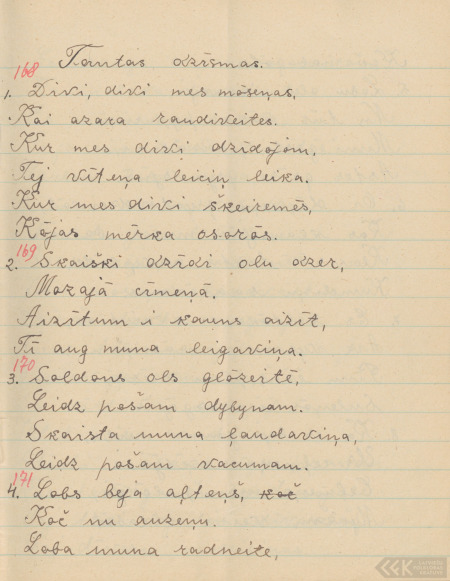 Tautas dzīsmas.
168
1. Divi, divi mes möseņas,
Kai azara raudiveites.
Kur mes divi dzīdöjöm,
Tej vīteņa leiciņ leika.
Kur mes divi škeiremēs,
Köjas mērka osorös.
169
2. Skaiški dzīdi olu dzer,
Mozajā cīmeņā.
Aizītum i kauns aizīt,
Tī aug muna leigaviņa.
170
3. Soldons ols glözeitē,
Leidz pošam dybynam.
Skaista muna ļaudaviņa,
Leidz pošam vacumam.
171
4. Lobs beja aļteņš, koč
Koč nu auzeņu.
Loba muna radneite,